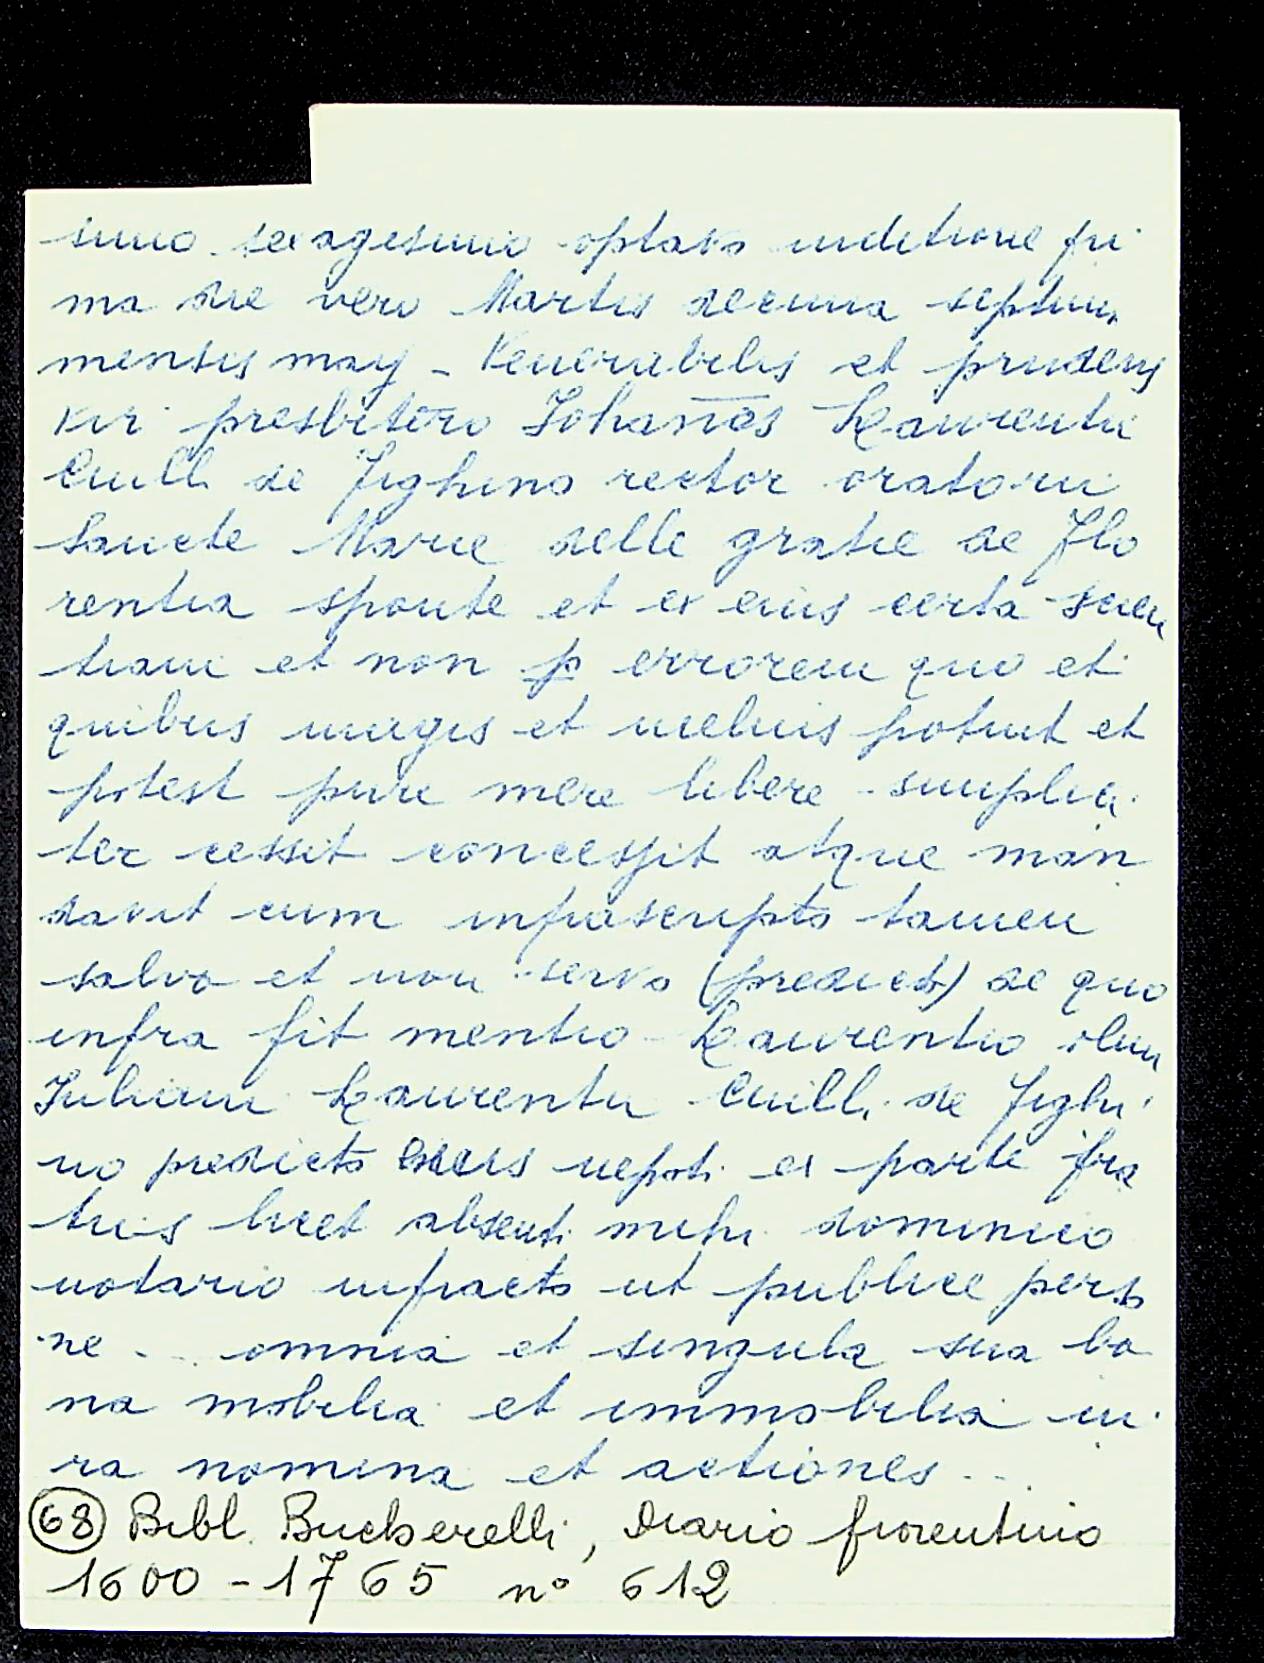 simo sexagesimo optavo inditione pri
ma die vero Martis decima septim
mensis may - Venerabilis et prudens
vir presbitero Johanes Laurentii
Cuilli de Fighino rector oratorii
Sancte Marie delle gratie de Flo
rentia sponte et ex eius certa scien
tiam et non p errorem quo et
quibus magis et melius potuit et
potest pure mere libere simplici
ter cessit concessit atque man
davit cum infrascripto tamen
salvo et non servo (predict) de quo
infra fit mentio Laurentio olim
Juliani Laurentii Cuilli de Fighi
no predicto eius nepoti ex parte fra
tris licet absenti mihi dominico
notario infracto ut publice perso
ne ... omnia et singula sua bo
na mobilia et immobilia iu
ra nomina et actiones ...
(68) Bibl. Buckerelli, Diario fiorentino
1600-1765 n° 612